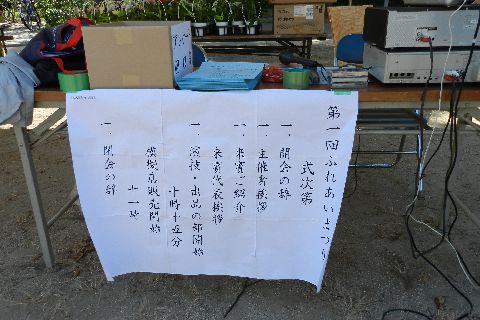 第一回ふれあいまつり
式次第
一、開会の辞
一、主催者挨拶
一、来賓ご紹介
来賓代表挨拶
一、演技・出品の部開始
十時十五分
模擬店販売開始
十一時
一、閉会の辞